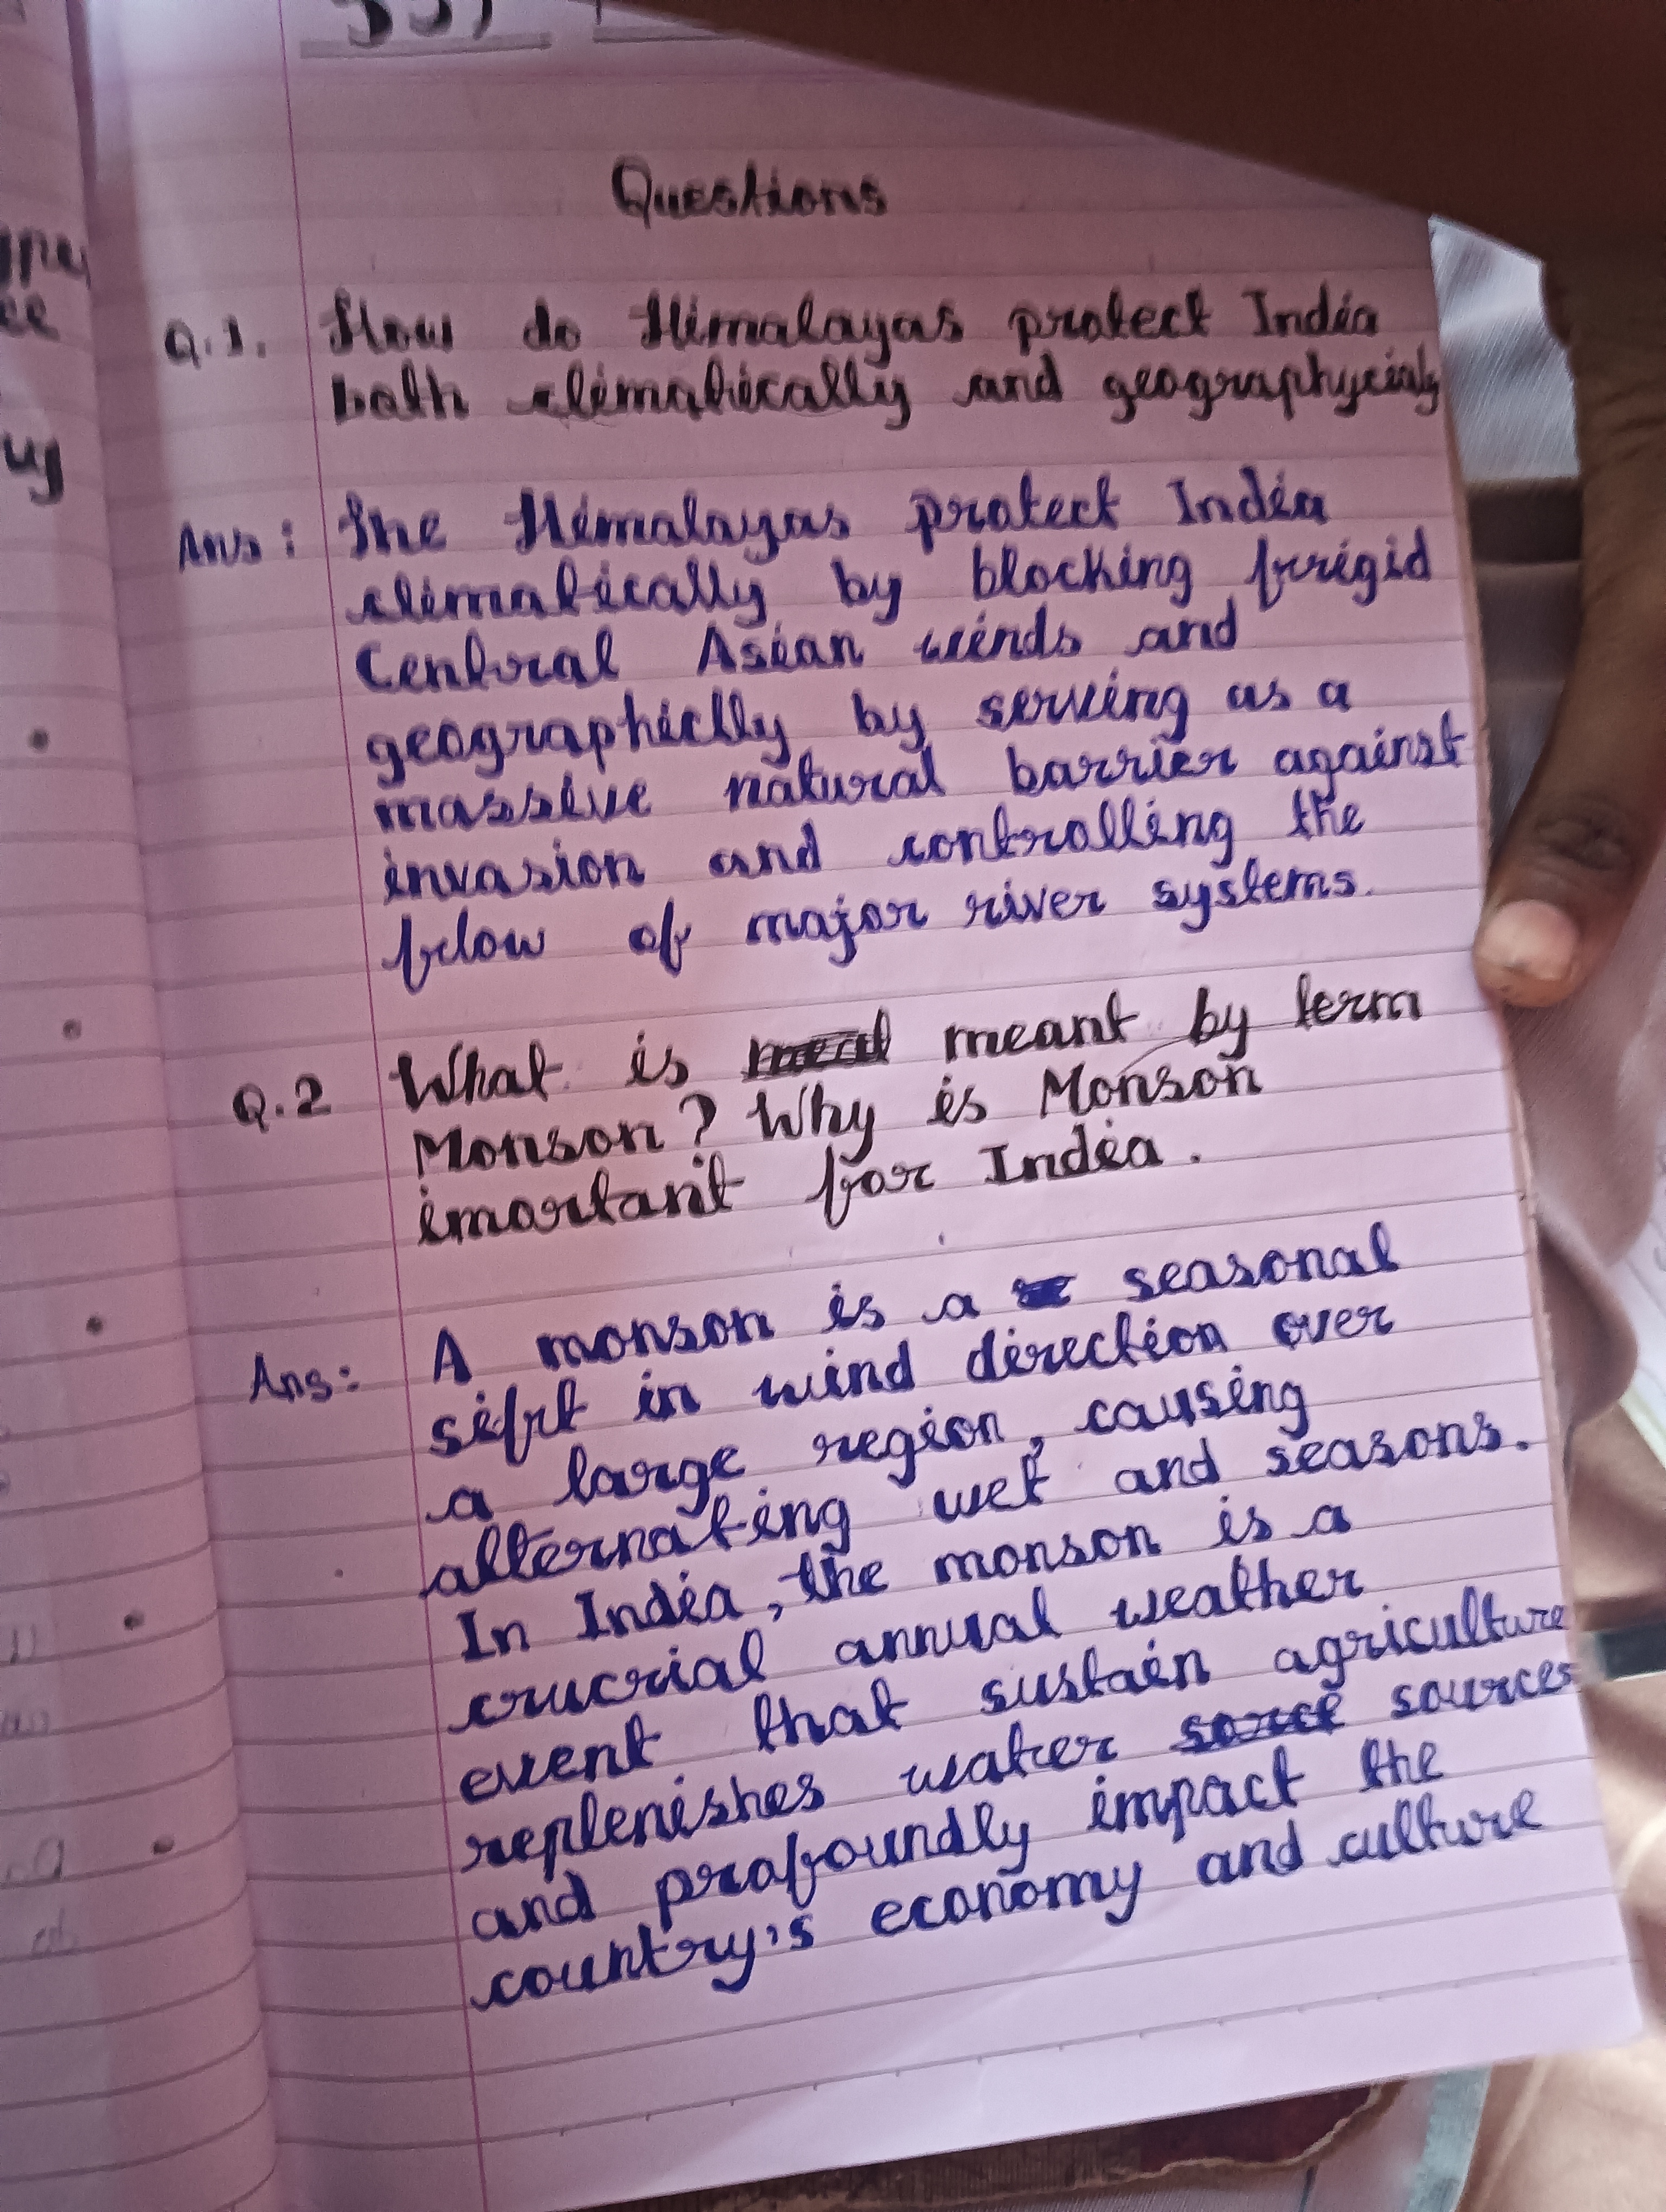 Questions
Q.1. How do Himalayas protect India
both climatically and geographycialy
Ans: The Himalayas protect India
climatically by blocking frrigid
Central Asian winds and
geographiclly by serving as a
massive natural barrier against
invasion and controlling the
flow of major river systems.
Q.2 What is meant by term
Monson? Why is Monson
imortant for India.
Ans: A monson is a seasonal
sifrt in wind direction over
a large region, causing
alternating wet and seasons.
In India, the monson is a
crucrial annual weather
event that sustain agriculture
replenishes water sources
and profoundly impact the
country's economy and culture